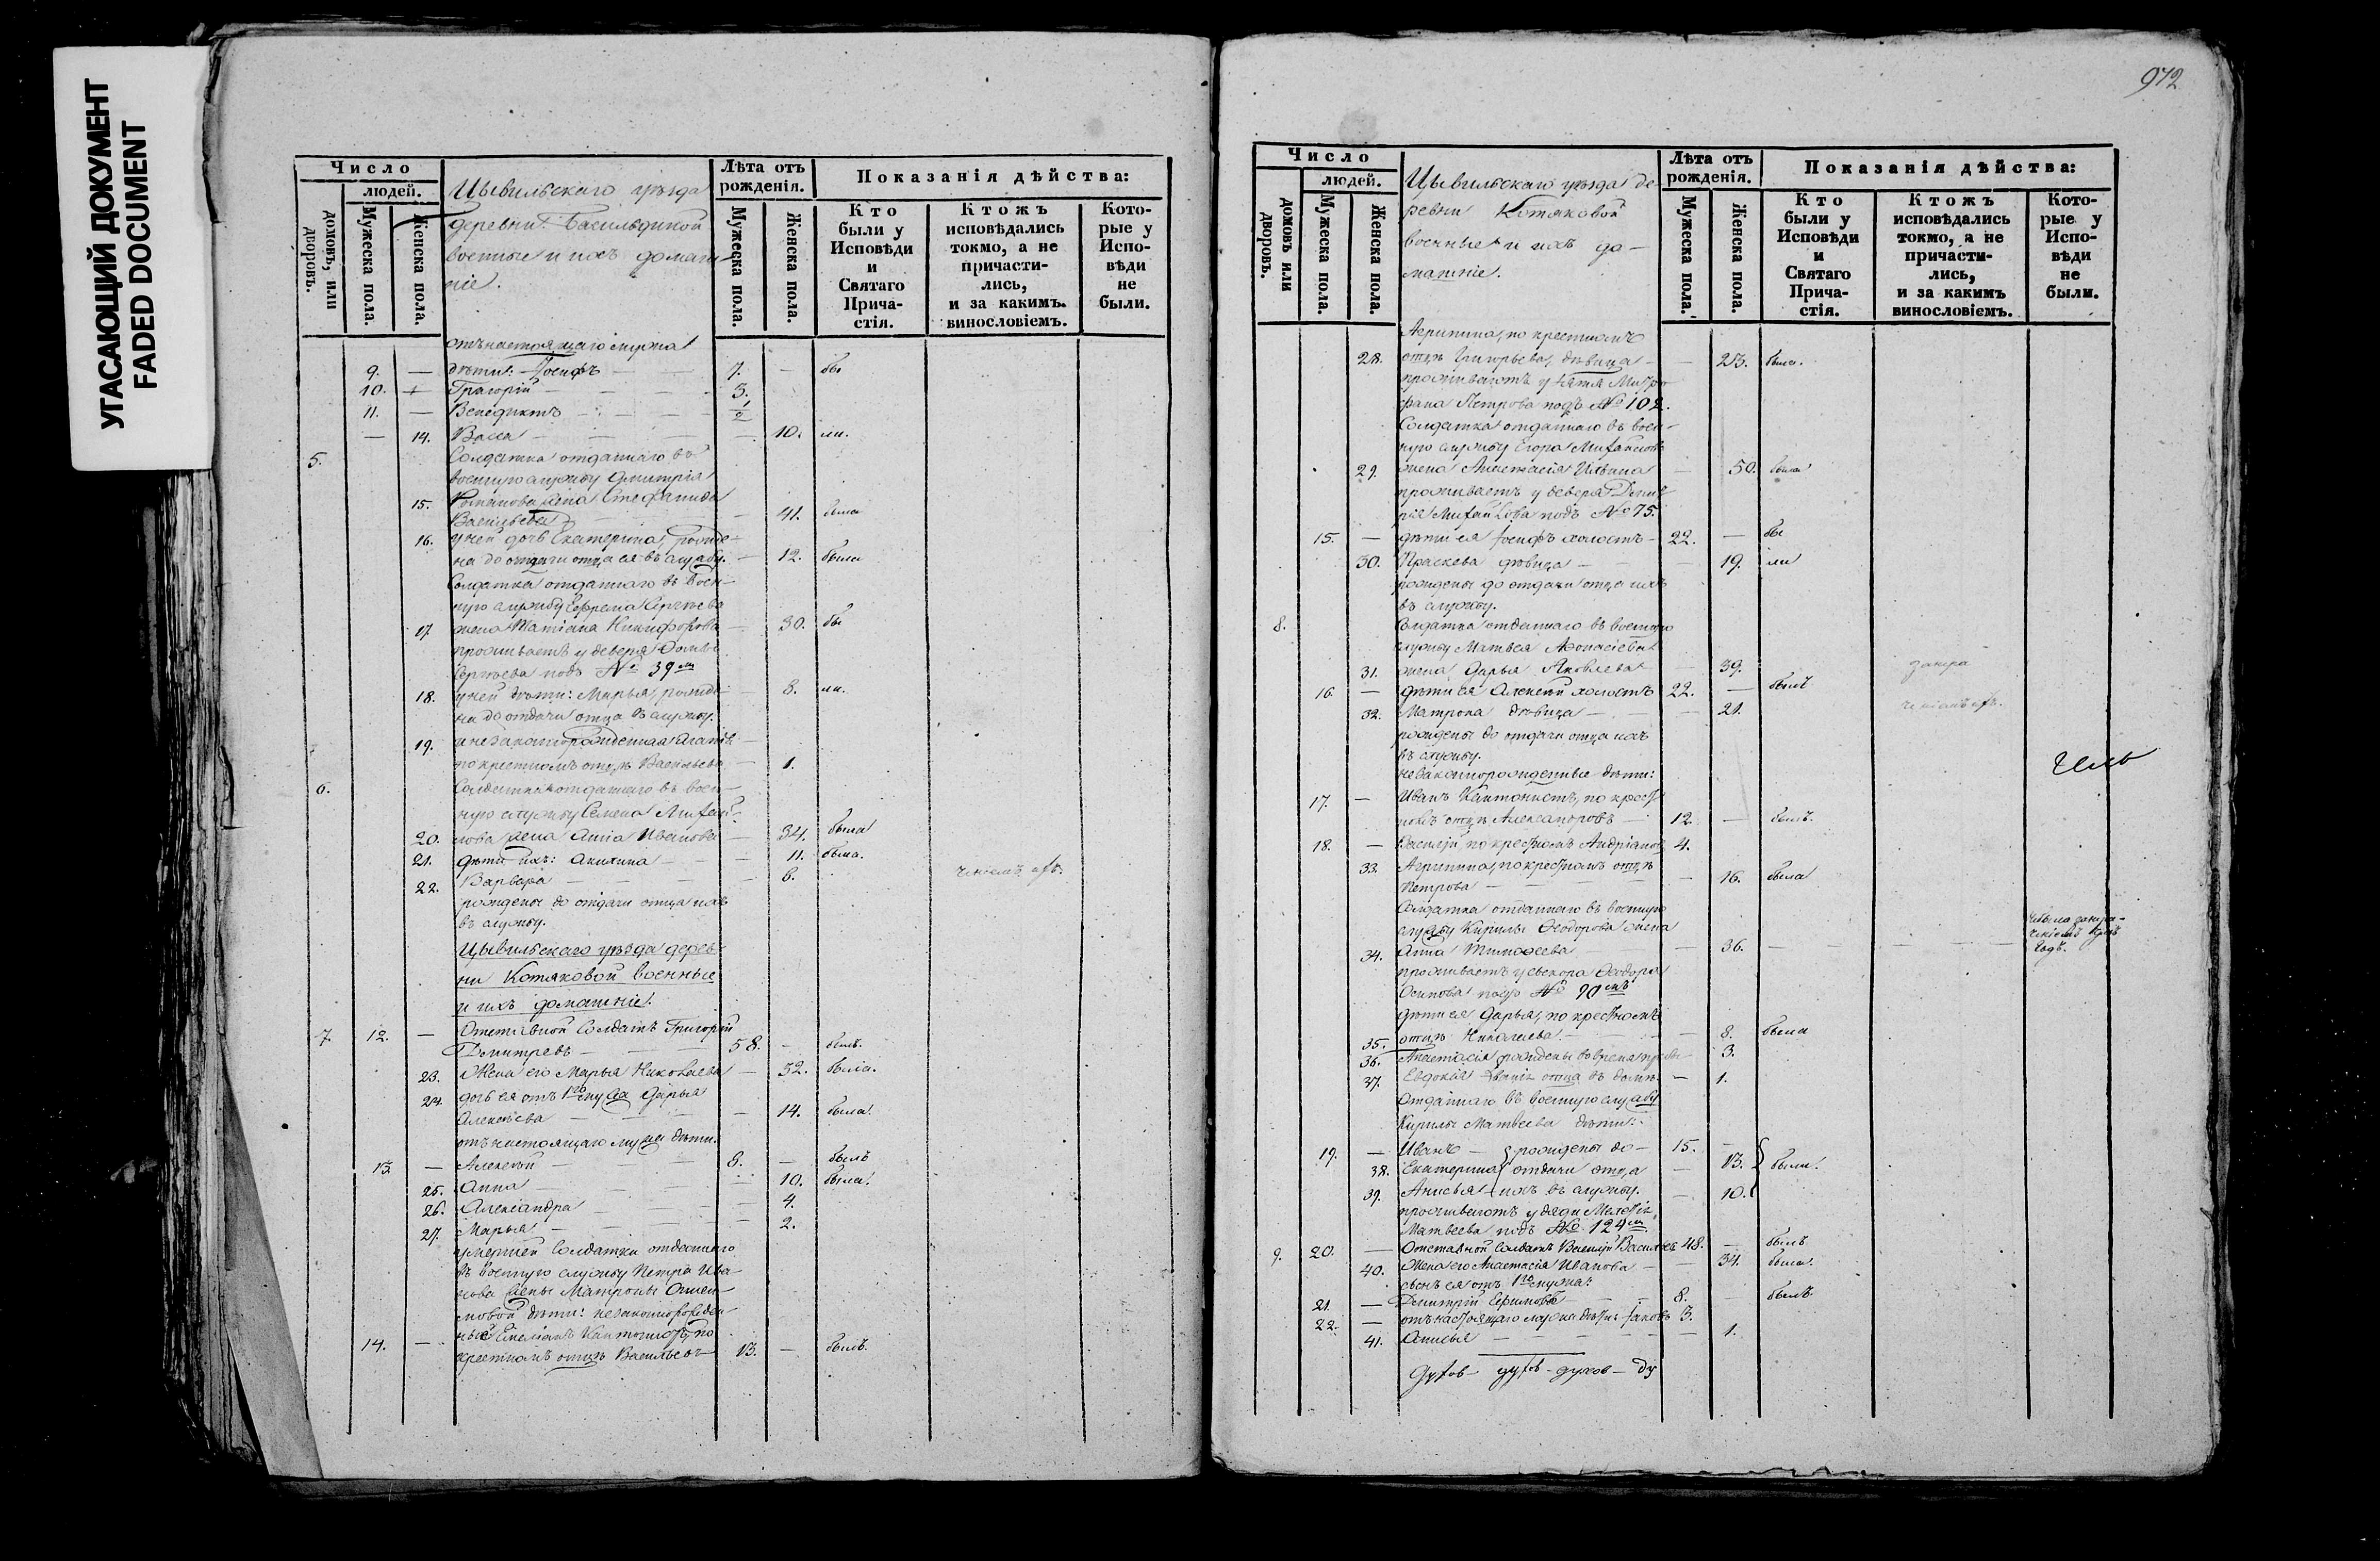 УГАСАЮЩИЙ ДОКУМЕНТ
FADED DOCUMENT
Число
людей.
домовъ, или дворовъ.
Мужеска пола.
Женска пола.
Цывильскаго уѣзда
деревни
военные и ихъ домаш-
ніе.
Лѣта отъ
рожденія.
Мужеска пола.
Женска пола.
Показанія дѣйства:
Кто
были у
Исповѣди
и
Святаго
Прича-
стія.
Ктожъ
исповѣдались
токмо, а не
причасти-
лись,
и за какимъ
винословіемъ.
Кото-
рые у
Испо-
вѣди
не
были.
отъ настоящаго мужа
9. — дѣти: Іосифъ — — 7. — бы
10. Григорій — — 3.
11. — Венедиктъ — — 1/2
— 14. Васса — — 10. ли.
5. Солдатка отданнаго въ
военную службу Димитрія
15. Романова жена Стефанида
Васильева — 41. была
16. у ней дочь Екатерина, рожде-
на до отдачи отца ея въ службу. — 12. была
Солдатка отданнаго въ воен-
ную службу Ефрема Сергѣева
17. жена Татіана Никифорова — 30. бы
проживаетъ у деверя
Сергѣева подъ № 39мъ
18. у ней дѣти: Марья, рожде- — 8. ли.
на до отдачи отца въ службу.
19. и незаконнорожденная
по крестномъ отцѣ Васильева — 1.
6. Солдатка отданнаго въ воен-
ную службу Семена Михай-
20. лова жена Анна Иванова — 34. была
21. дѣти ихъ: Акилина — — 11. была.
22. Варвара — — 6.
рождены до отдачи отца ихъ
въ службу.
Цывильскаго уѣзда дерев-
ни Котяковой военные
и ихъ домашніе.
7. 12. — Отставной Солдатъ Григорій
Димитревъ — — 58. — былъ.
23. Жена его Марья Николаева — 32. была.
24. дочь ея отъ 1го мужа Дарья
Алексѣева — — 14. была.
отъ настоящаго мужа дѣти.
13. — Алексѣй — — 8. — былъ
25. Анна — — 10. была.
26. Александра — — 4.
27. Марья — — 2.
умершей Солдатки отданнаго
въ военную службу Петра Ива-
нова жены Матроны
дѣти: незаконнорожден-
ный Емеліанъ Кантонистъ, по
14. — крестномъ отцѣ Васильевъ 13. — былъ.
972
Число
людей.
домовъ или дворовъ.
Мужеска пола.
Женска пола.
Цывильскаго уѣзда де-
ревни Котяковой
военные и ихъ до-
машніе.
Лѣта отъ
рожденія.
Мужеска пола.
Женска пола.
Показанія дѣйства:
Кто
были у
Исповѣди
и
Святаго
Прича-
стія.
Ктожъ
исповѣдались
токмо, а не
причасти-
лись,
и за какимъ
винословіемъ.
Кото-
рые у
Испо-
вѣди
не
были.
Агрипина, по крестномъ
28. отцѣ Григорьева, дѣвица — 23. была.
проживаютъ у зятя Митро-
фана Петрова подъ № 102.
Солдатка отданнаго въ воен-
ную службу Егора Михайлова
29. жена Анастасія Ильина — 50. была
проживаетъ у деверя
Михайлова подъ № 75.
15. — дѣти ея Іосифъ холостъ — 22. — бы
30. Праскева дѣвица — — 19. ли
рождены до отдачи отца ихъ
въ службу.
8. Солдатка отданнаго въ военную
службу Матвея Аѳонасіева
31. жена Дарья Яковлева — 39.
16. — дѣти ея Алексѣй холостъ 22. — былъ
32. Матрона дѣвица — — 21.
рождены до отдачи отца ихъ
въ службу.
незаконнорожденные дѣти:
17. — Иванъ Кантонистъ, по крест-
номъ отцѣ Александровъ — 12. — былъ.
18. — Василій, по крестномъ Андріановъ 4.
33. Агрипина, по крестномъ отцѣ
Петрова — — 16. была
Солдатка отданнаго въ военную
службу Кирилы Ѳеодорова жена
34. Анна Тимоѳеева — 36. — —
проживаетъ у свекора Ѳеодора
Осипова подъ № 90мъ
дѣти ея Дарья, по крестномъ
35. отцѣ Николаева — — 8. была
36. Анастасія рождены во время — 3.
37. Евдокія отца въ домѣ. — 1.
Отданнаго въ военную службу
Кирилы Матвеева дѣти:
19. — Иванъ — рождены до — 15. —
38. Екатерина отдачи отца — 13. были.
39. Анисья ихъ въ службу. — 10.
проживаютъ у дяди
Матвеева подъ № 124мъ
9. 20. — Отставной Солдатъ Василій Васильевъ 48. — былъ
40. Жена его Анастасія Иванова — 34. была.
сынъ ея отъ 1го мужа:
21. — Димитрій Ефимовъ — — 8. — былъ
22. — отъ настоящаго мужа дѣти: Іаковъ 3.
41. Анисья — — — 1.